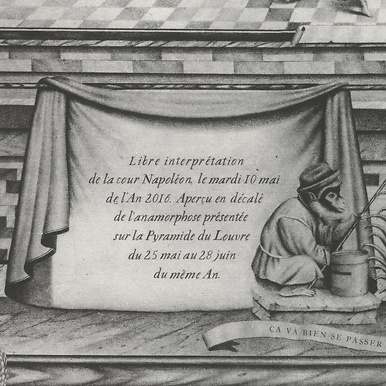 Libre interprétation
de la cour Napoléon, le mardi 10 mai
de l'An 2016. Aperçu en décalé
de l'anamorphose présentée
sur la Pyramide du Louvre
du 25 mai au 28 juin
du même An.
ÇA VA BIEN SE PASSER